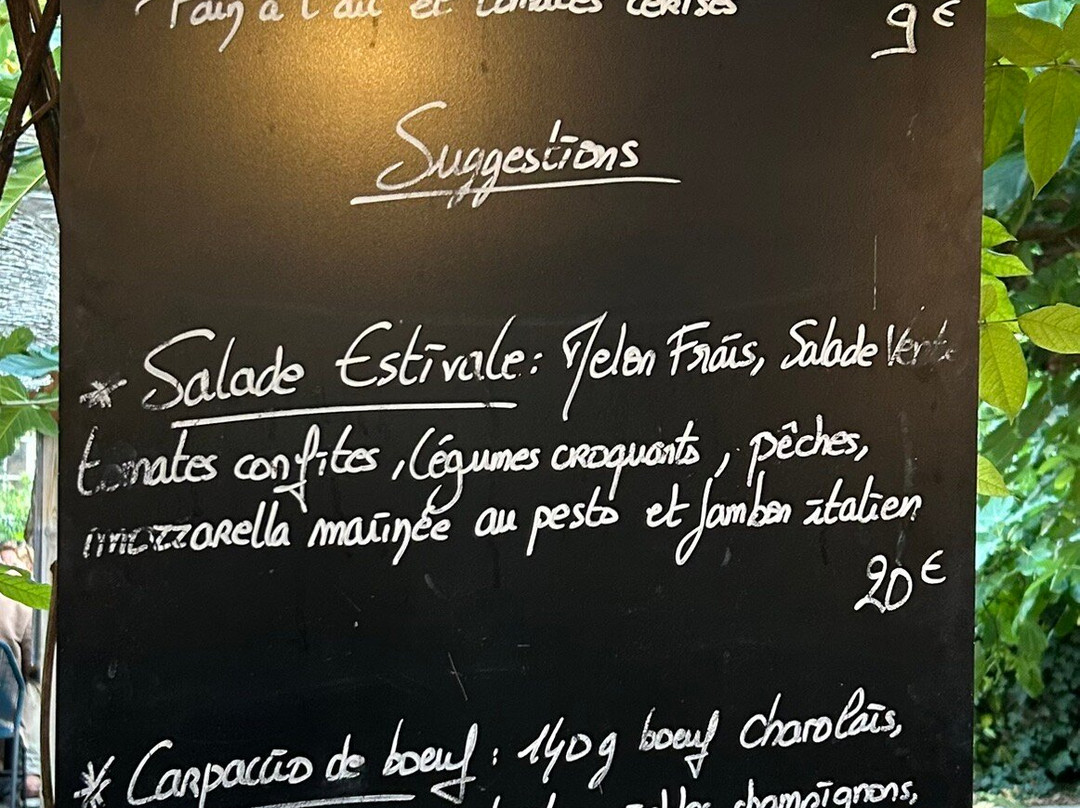 Pain à l'ail et tomates cerises
9€
Suggestions
* Salade Estivale : Melon Frais, Salade Verte
tomates confites, légumes croquants, pêches,
mozzarella marinée au pesto et Jambon italien
20€
* Carpaccio de boeuf : 140g boeuf charolais,
champignons,